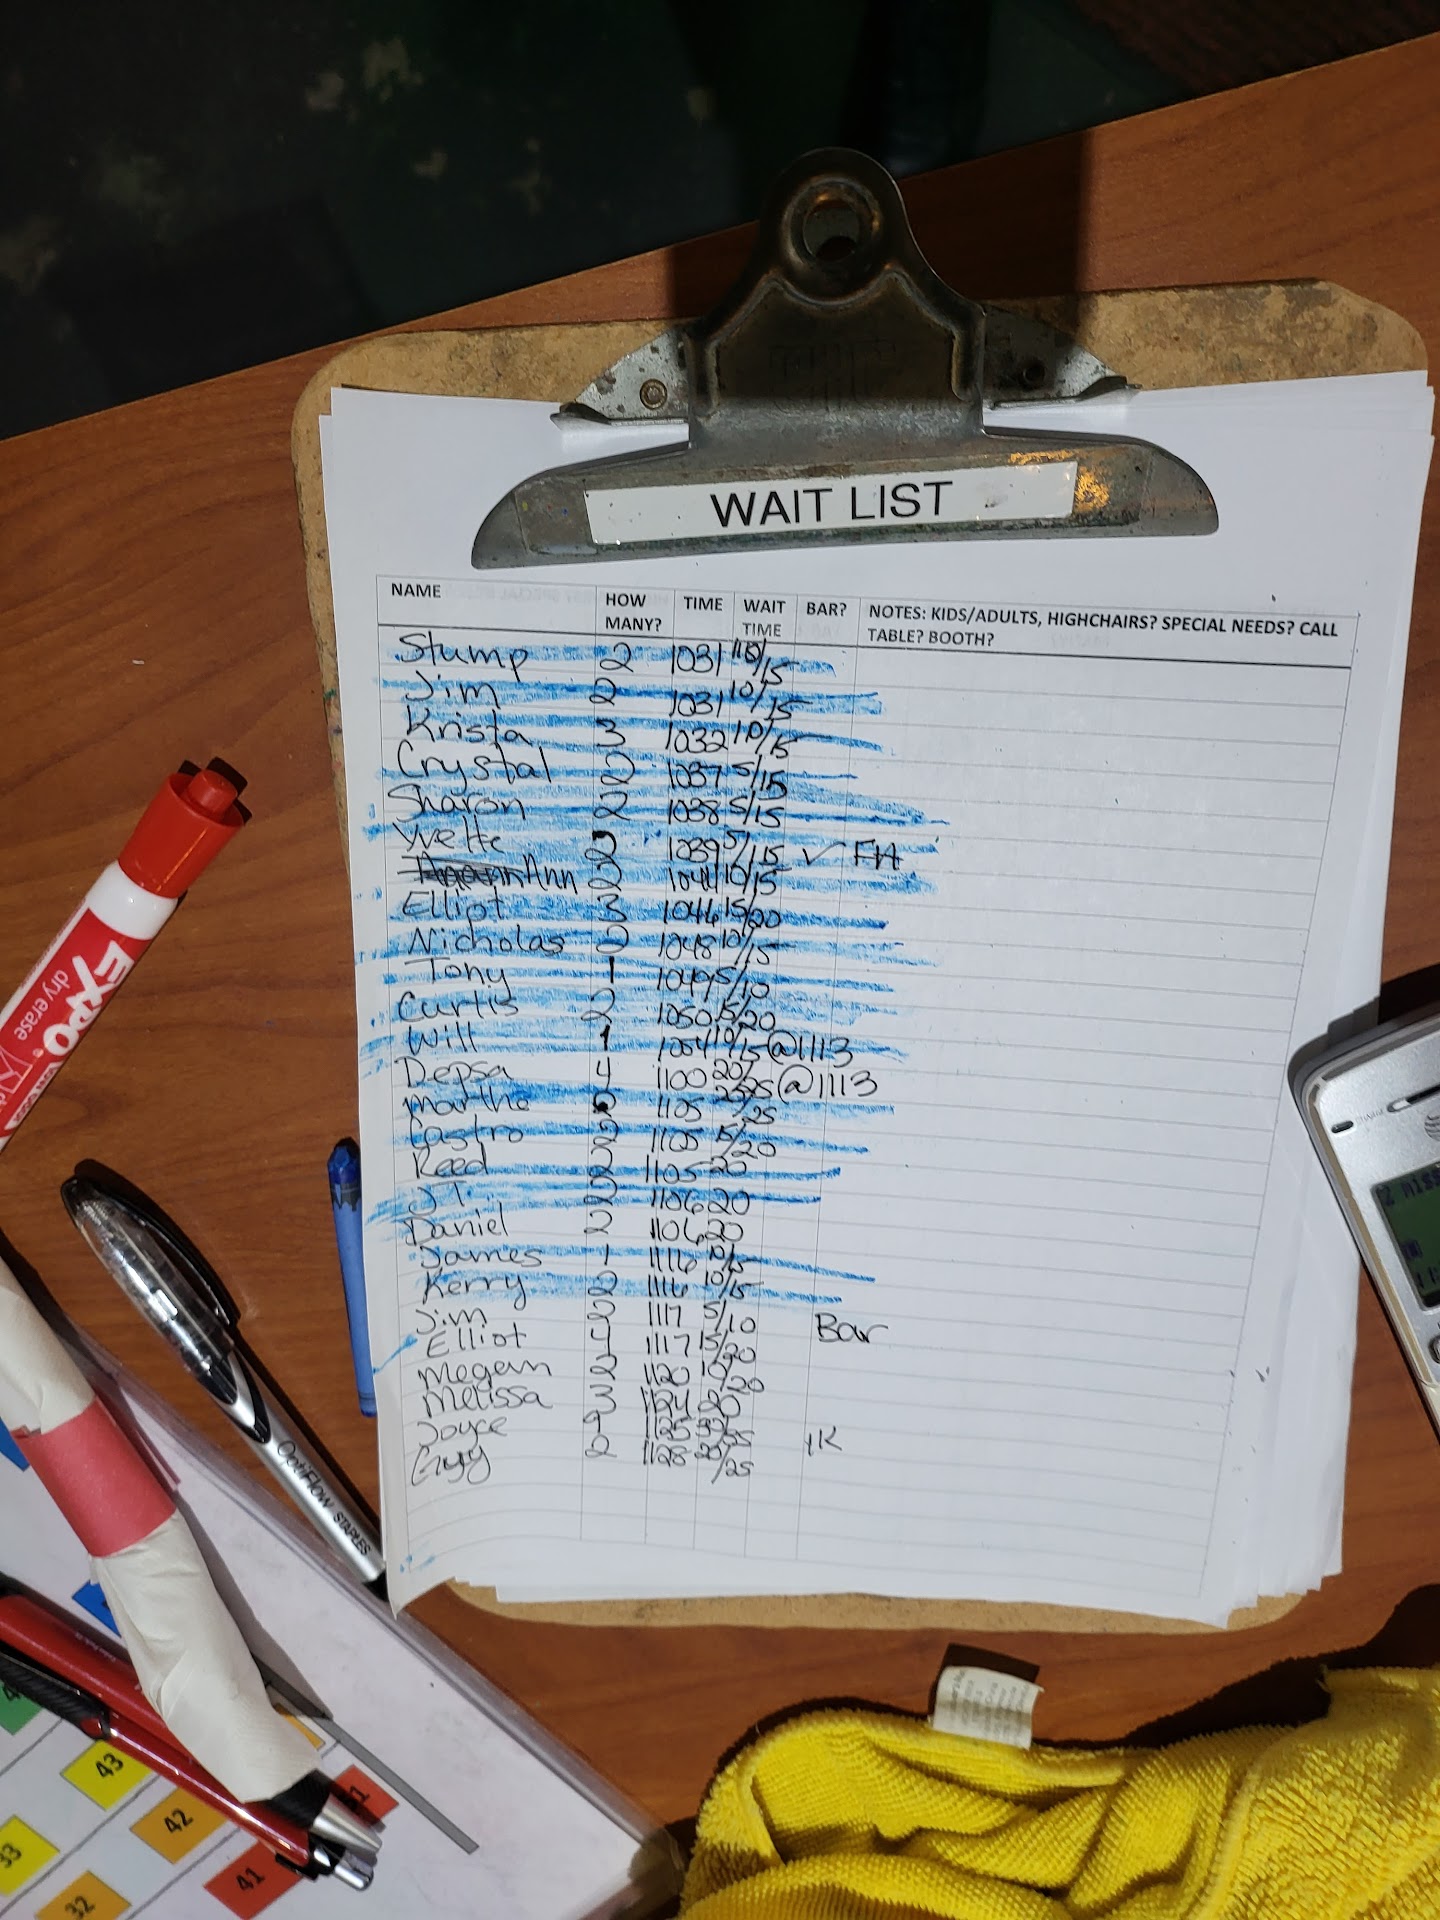 WAIT LIST
NAME HOW MANY? TIME WAIT TIME BAR? NOTES: KIDS/ADULTS, HIGHCHAIRS? SPECIAL NEEDS? CALL TABLE? BOOTH?
Stump 2 1031 10/15
Jim 2 1031 10/15
Krista 3 1032 10/15
Crystal 2 1037 5/15
Sharon 2 1038 5/15
Yvette 2 1039 5/15 ✓ FA
Ann 2 1041 10/15
Elliot 3 1046 15/20
Nicholas 2 1048 10/15
Tony 1 1049 5/10
Curtis 2 1050 15/20
Will 1 1054 10/15 @1113
Depsa 4 1100 20/25 @1113
Marthe 2 1105 25
Castro 2 1105 15/20
Reed 2 1105 20
JT 2 1106 20
Daniel 2 1106 20
James 1 1116 10/15
Kerry 2 1116 10/15
Jim 2 1117 5/10 Bar
Elliot 4 1117 15/20
Megan 2 1120 10/20
Melissa 3 1124 20
Joyce 9 1125 1K
Guy 2 1128 20/25
EXPO
dry erase
OptiFlow STAPLES
43
42
41
33
32